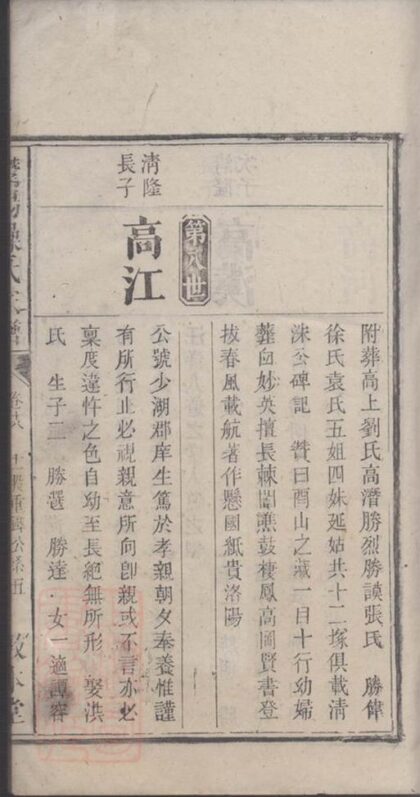 附葬高上劉氏高潛勝烈勝謨張氏 勝偉
徐氏袁氏五姐四妹延姑共十二塚俱載清
洙公碑記 贊曰酉山之藏一目十行幼婦
虀臼妙英擅長棘闈譙鼓棲鳳高岡賢書登
拔春風載航著作懸國紙貴洛陽
第八世
清隆
長子
高江
公號少湖郡庠生篤於孝親朝夕奉養惟謹
有所行止必視親意所向卽親或不言亦必
稟度違忤之色自幼至長絕無所形 娶洪
氏 生子二 勝選 勝達 女一適譚容
敘本堂